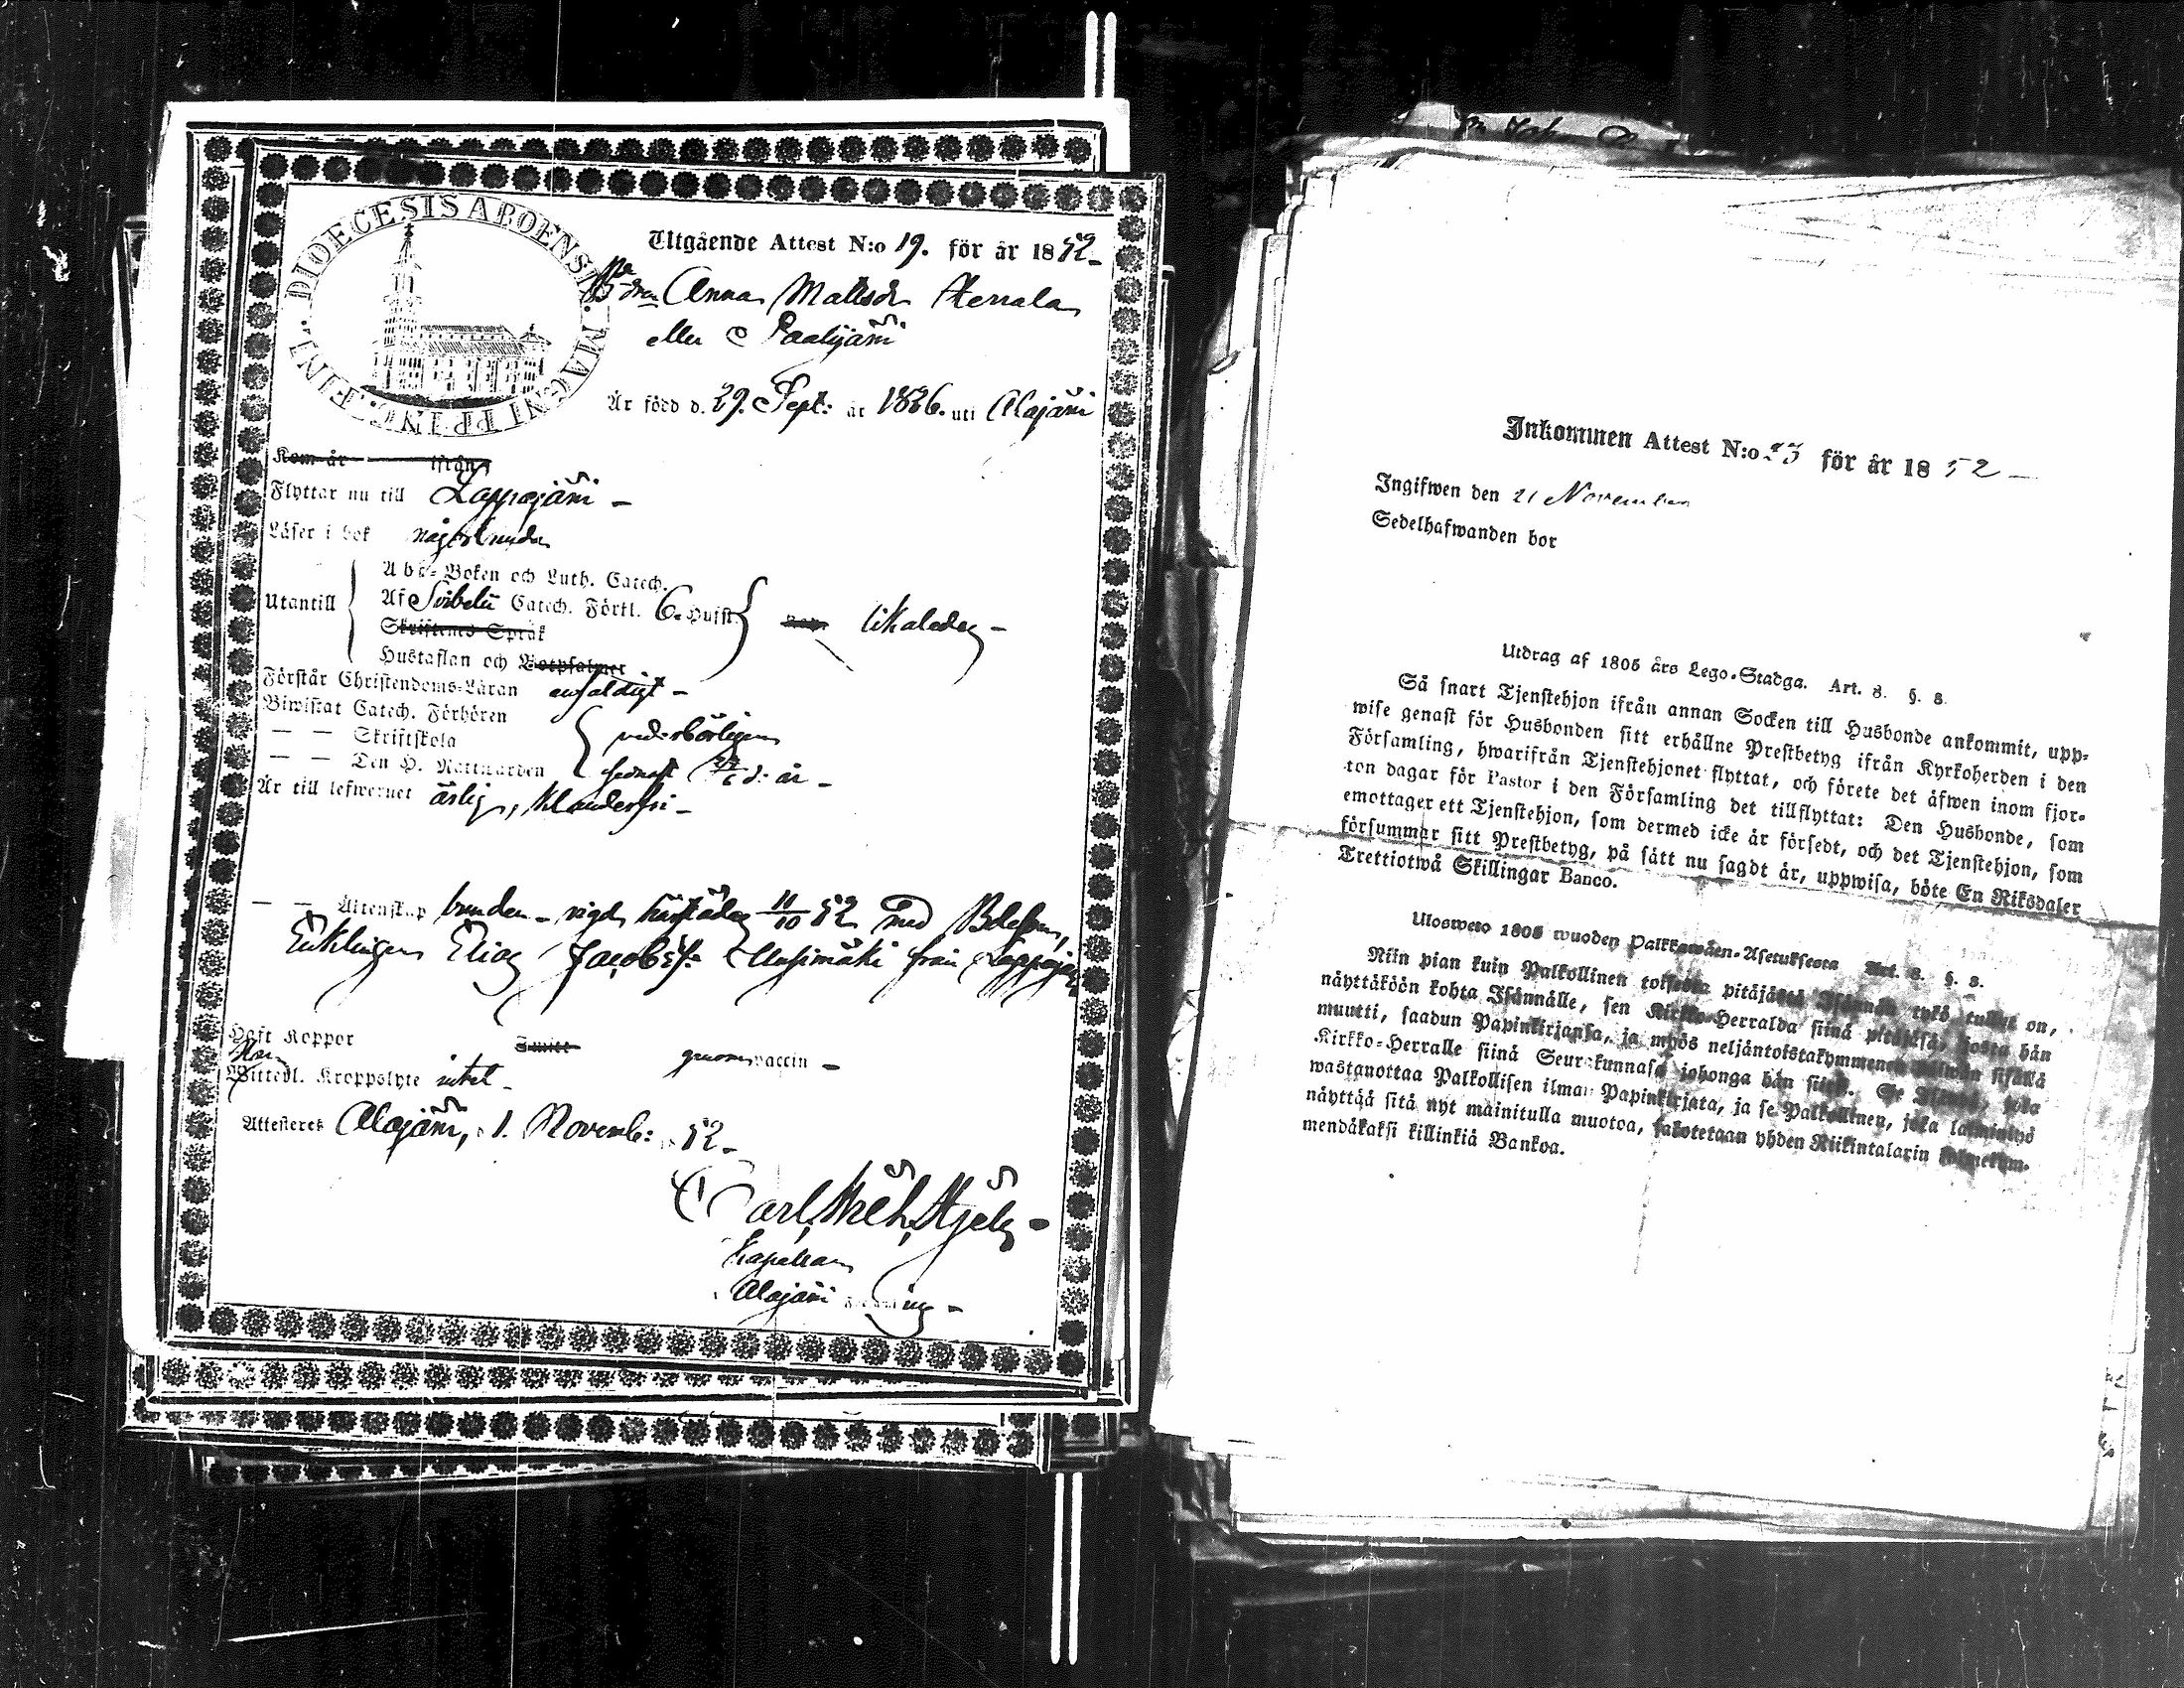 DIOECESIS ABOENSIS. MAGNI PRINC. FINL.
Utgående Attest N:o 19. för år 1852
Anna Mattsdr Kerrala
eller Paalijärvi
Är född d. 29. Sept: år 1826. uti Alajärvi
Kom år ifrån
Flyttar nu till Lappajärvi
Läser i bok någorlunda
Utantill
Abc-Boken och Luth. Catech.
Af Svibelii Catech. Förkl. 6. Hufst.
Skriftenes Språk
Hustaflan och Botpsalmer
likaledes
Förstår Christendoms-Läran enfaldigt
Biwistat Catech. Förhören
— — Skriftskola
— — Den H. Nattwarden
vederbörligen
sednast d: år
Är till lefwernet ärlig, klanderfri
— — Äktenskap bunden vigd härstädes 11/10 52 med
Enklingen Elias Jacobsf. Uusimäki från Lappajärvi
Haft Koppor genom vaccin
Wittedl. Kroppslyte intet
Attesteras Alajärvi, 1. Novemb: 52
Carl
Kapellan
Alajärvi
Inkommen Attest N:o 23 för år 1852
Ingifwen den 21 November
Sedelhafwanden bor
Utdrag af 1805 års Lego-Stadga. Art. 8. §. 8.
Så snart Tjenstehjon ifrån annan Socken till Husbonde ankommit, upp-
wise genast för Husbonden sitt erhållne Prestbetyg ifrån Kyrkoherden i den
Församling, hwarifrån Tjenstehjonet flyttat, och förete det äfwen inom fjor-
ton dagar för Pastor i den Församling det tillflyttat: Den Husbonde, som
emottager ett Tjenstehjon, som dermed icke är försedt, och det Tjenstehjon, som
försummar sitt Prestbetyg, på sätt nu sagdt är, uppwisa, böte En Riksdaler
Trettiotwå Skillingar Banco.
Ulosweto 1805 wuoden Palkkawäen-Asetuksesta Art. 8. §. 8.
Niin pian kuin Palkollinen toisesta pitäjästä Isännän tykö tullut on,
näyttäköön kohta Isännälle, sen Kirkko-Herralda siinä pitäjäsä, josta hän
muutti, saadun Papinkirjansa, ja myös neljäntoistakymmenen päiwän sisällä
Kirkko-Herralle siinä Seurakunnasa johonga hän siirti. Se Isäntä, joka
wastanottaa Palkollisen ilman Papinkirjata, ja se Palkollinen, joka laiminlyö
näyttää sitä nyt mainitulla muotoa, sakotetaan yhden Riikintalarin kolmekym-
mendäkaksi killinkiä Bankoa.